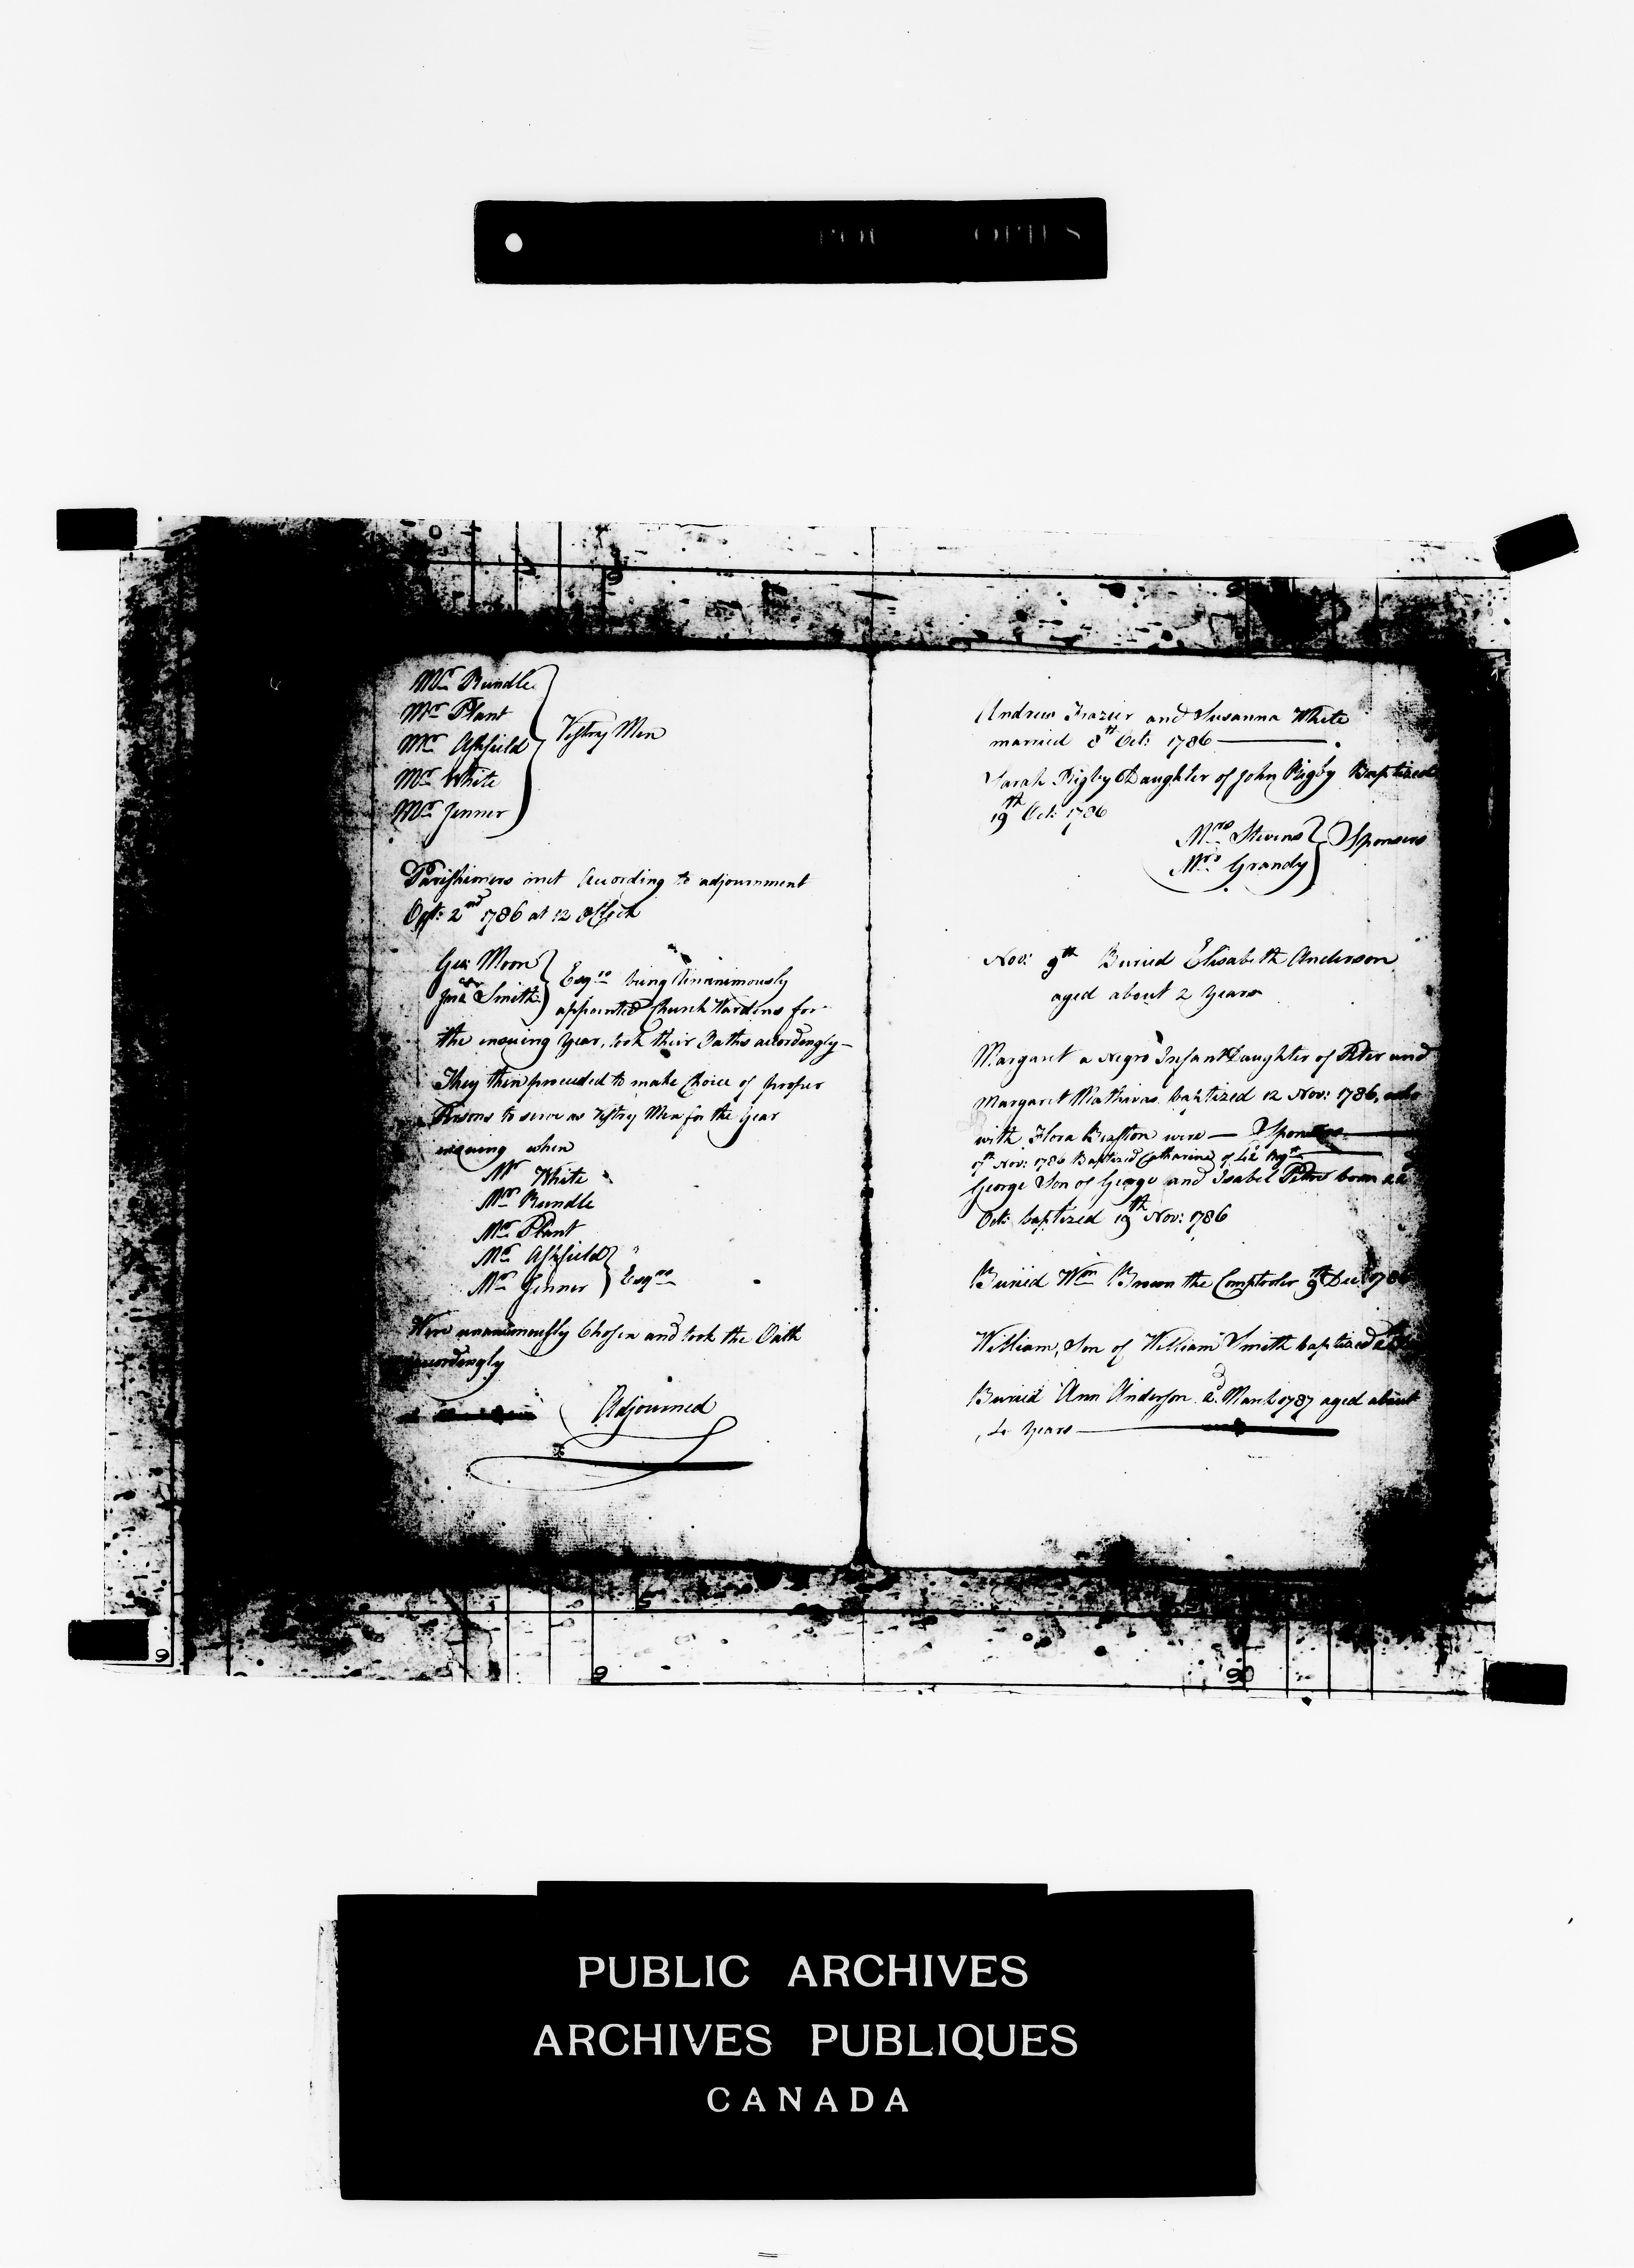 Mr Rundle
Mr Plant
Mr Ashfield
Mr White
Mr Jenner
Vestry Men
Parishioners met According to adjournment
Oct: 2nd 1786 at 12 oClock
Geo: Moon
Jno Smith
Esqrs being Unanimously
appointed Church Wardens for
the ensuing Year, took their Oaths accordingly—
They then proceeded to make Choice of proper
Persons to serve as Vestry Men for the Year
ensuing when
Mr White
Mr Rundle
Mr Plant
Mr Ashfield
Mr Jenner
Esqrs
Were unanimously Chosen and took the Oath
accordingly
Adjourned
Andrew Frazier and Susanna White
married 8th Oct: 1786
Sarah Rigby Daughter of John Rigby Baptized
19th Oct: 1786
Mrs Stevens
Mrs Grandy
Sponsers
Nov: 9th Buried Elisabeth Anderson
aged about 2 Years
Margaret a Negro Infant Daughter of Peter and
Margaret baptized 12 Nov: 1786. who
with Flora were — Sponsers
Nov: 1786 Baptized Catharine of
George Son of George and Isabel born
Oct: baptized 19th Nov: 1786
Buried Wm Brown the Comptroler 9th Decr 1786
William, Son of William Smith baptized
Buried Ann Anderson 2d March 1787 aged about
4 Years
PUBLIC ARCHIVES
ARCHIVES PUBLIQUES
CANADA